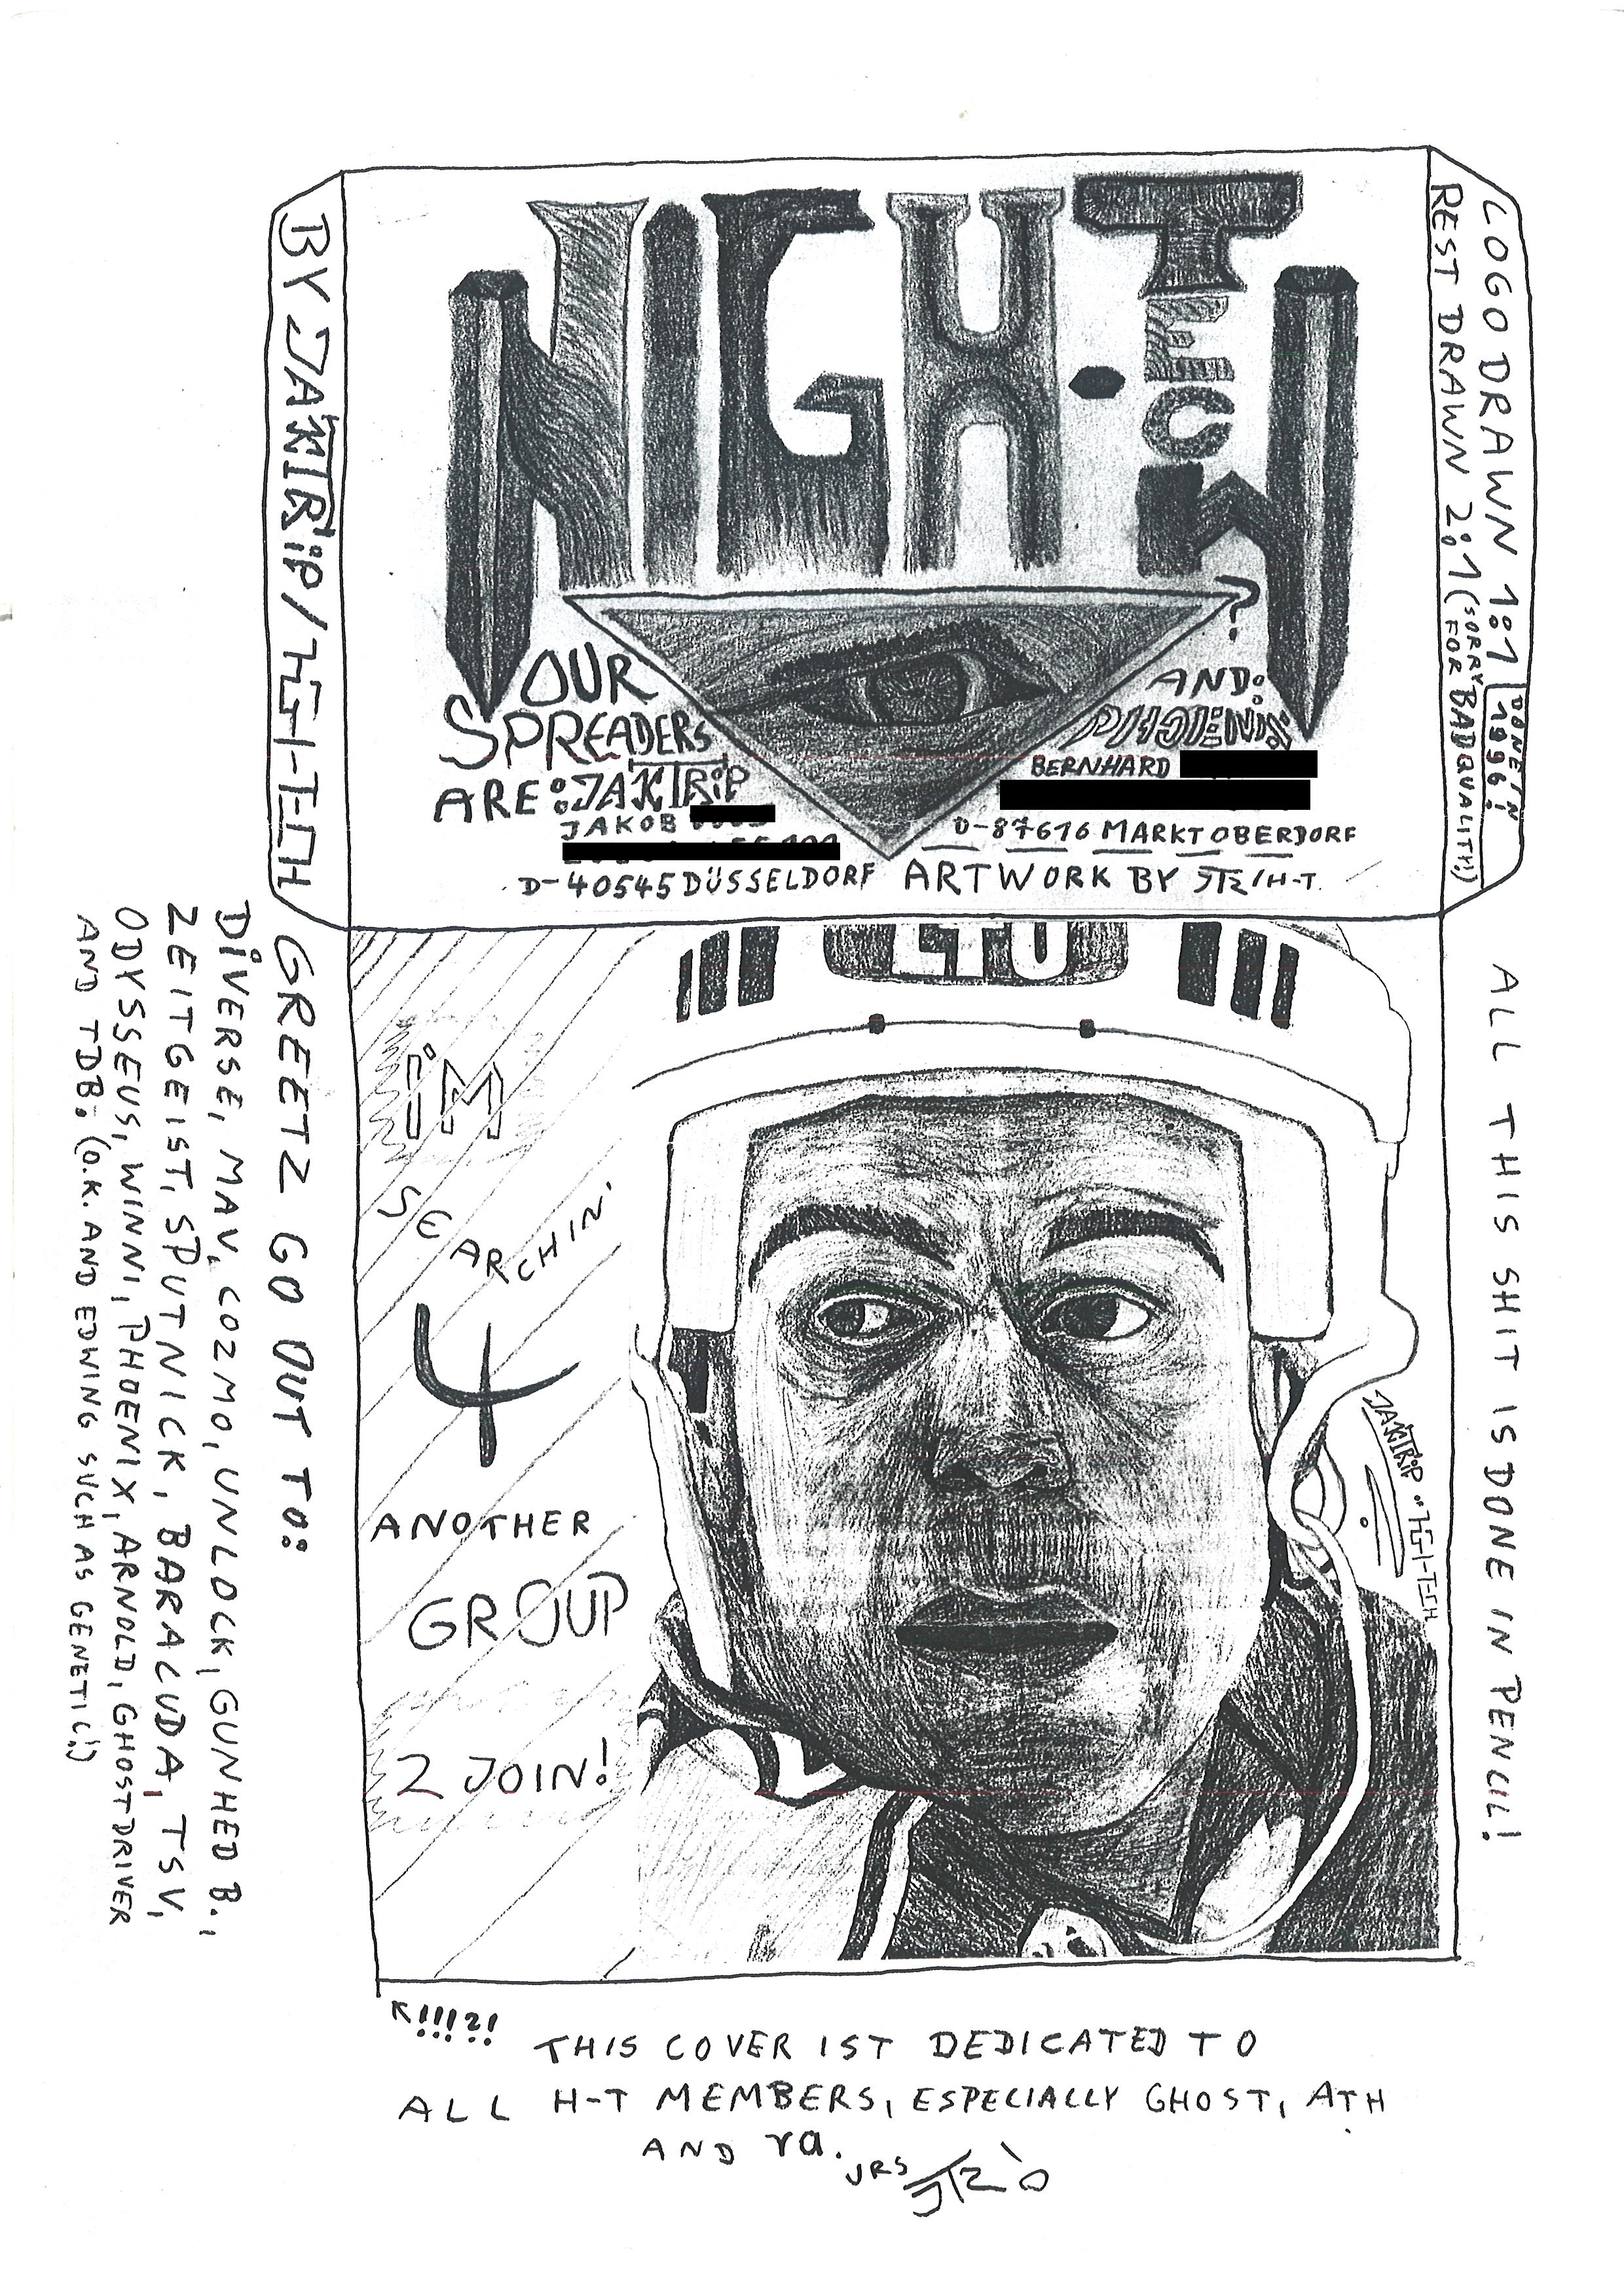 HIGH-TECH
?
OUR
SPREADERS
ARE: JAKTRiP
JAKOB
D-40545 DÜSSELDORF
AND:
PHOENIX
BERNHARD
D-87616 MARKTOBERDORF
ARTWORK BY JTR/H-T.
BY JAKTRiP/HIGH-TECH
LOGO DRAWN 1:1
REST DRAWN 2:1 (SORRY FOR BAD QUALITY!)
DONE IN 1996!
LTU
i'M
SEARCHIN'
4
ANOTHER
GROUP
2 JOIN!
JAKTRiP
GREETZ GO OUT TO:
DiVERSE, MAV, COZMO, UNLOCK, GUNHED B.,
ZEITGEIST, SPUTNICK, BARACUDA, TSV,
ODYSSEUS, WINNI, PHOENIX, ARNOLD, GHOSTDRIVER
AND TDB. (O.K. AND EDWING SUCH AS GENETIC!)
ALL THIS SHIT IS DONE IN PENCIL!
!!!?!
THIS COVER IST DEDICATED TO
ALL H-T MEMBERS, ESPECIALLY GHOST, ATH
AND ra.
JRS